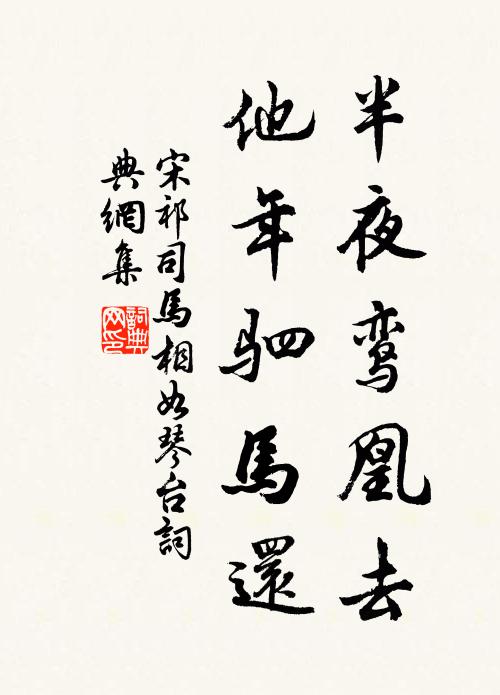 半夜鸾凰去
他年驷馬還
宋祁司馬相如琴台詞
典網集
詞典
网印